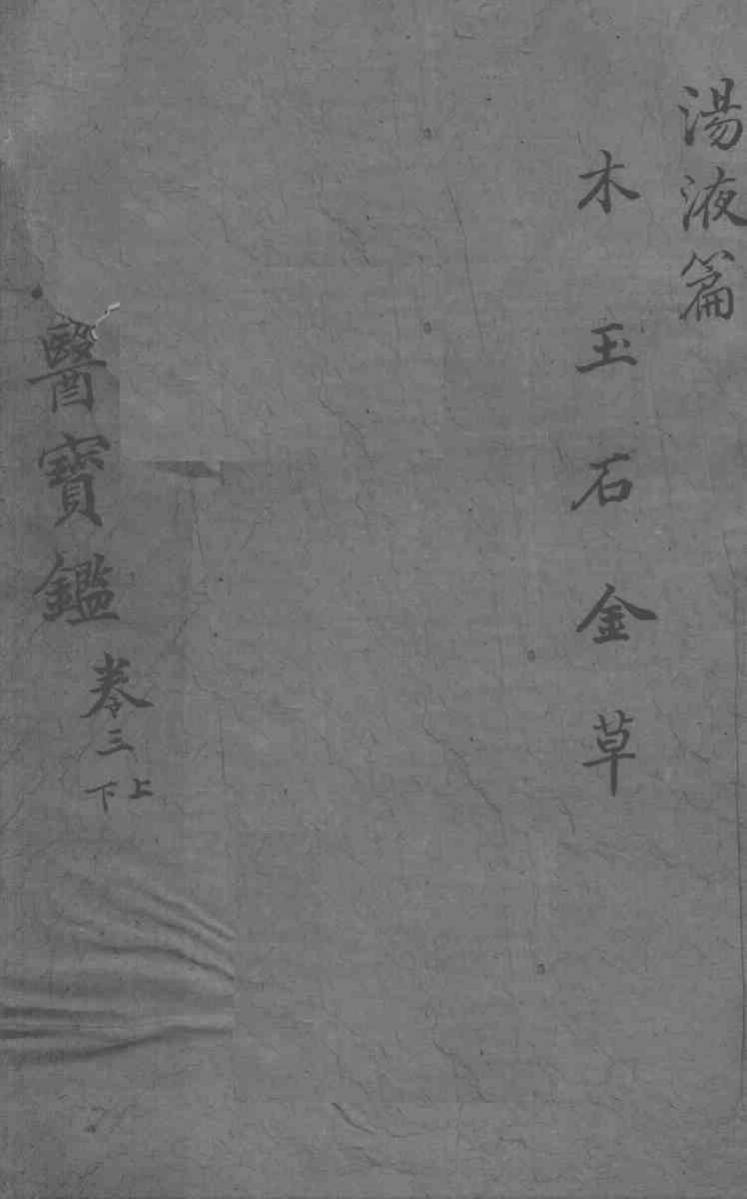 湯液篇
木玉石金草
醫寶鑑
卷三
上
下